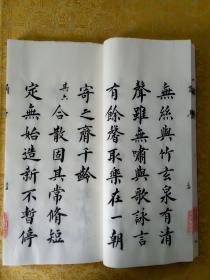 無絲與竹玄泉有清
聲雖無嘯與歌詠言
有餘馨取樂在一朝
寄之齋千齡
其六
合散固其常脩短
定無始造新不暫停